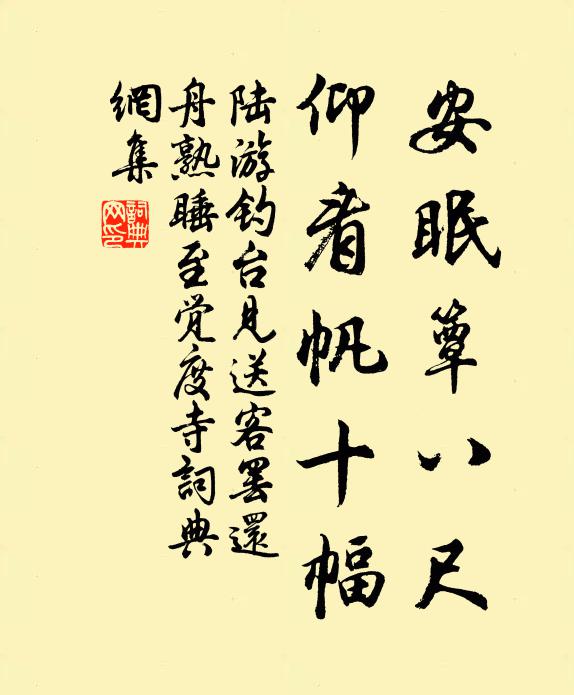 安眠簟八尺
仰看帆十幅
陆游钓台见送客罢還
舟熟睡至覚度寺詞典
網集
詞典網印